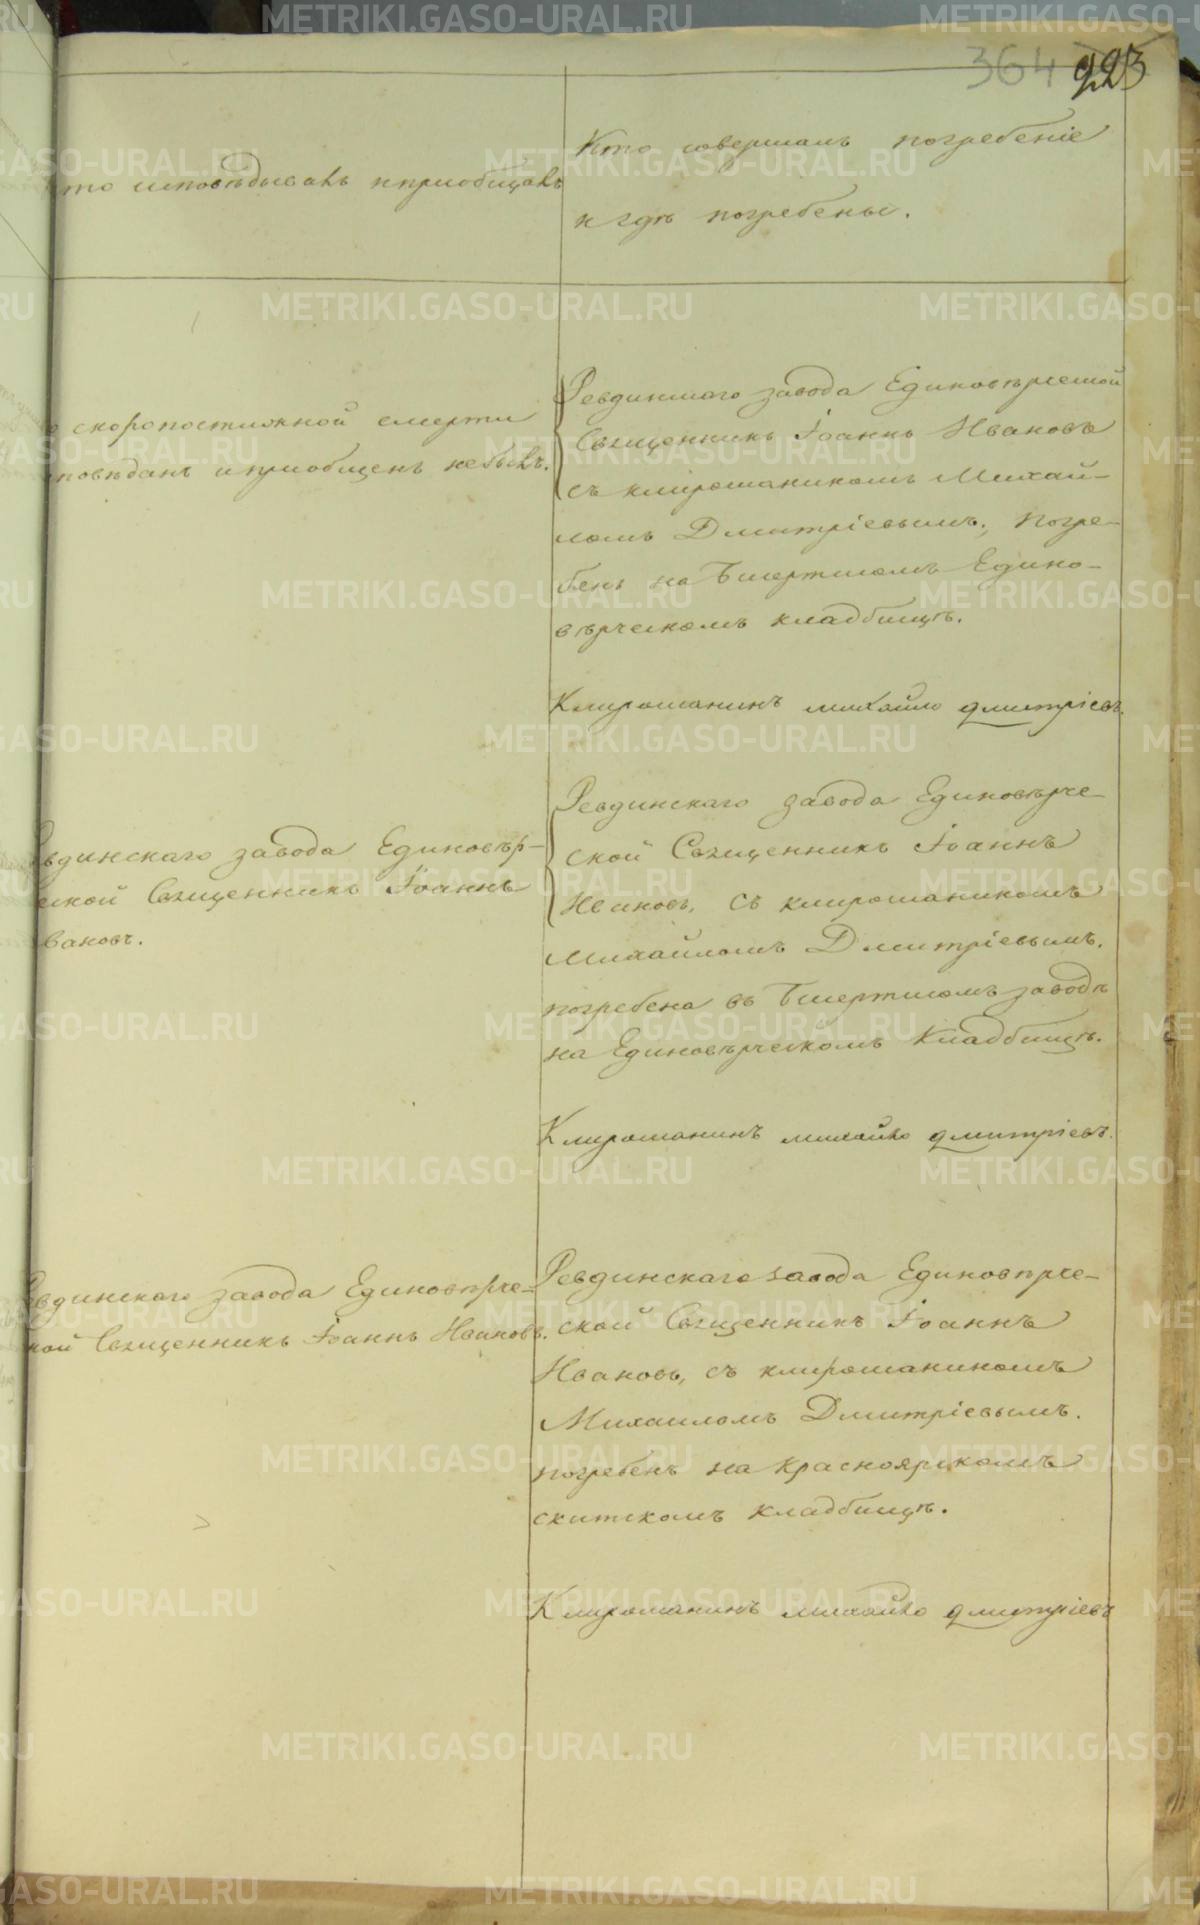 364 223
Кто исповѣдывалъ и приобщалъ
Кто совершалъ погребеніе
и гдѣ погребены.
о скоропостижной смерти
повѣданъ и приобщенъ небылъ.
Ревдинскаго завода Единовѣрческой
Священникъ Іоаннъ Ивановъ
съ клирошаникомъ Михай-
ломъ Дмитріевымъ, погре-
бенъ на Бисертскомъ Едино-
вѣрческомъ кладбищѣ.
Клирошанинъ михайло дмитріевъ.
евдинскаго завода Единовѣр-
ческой Священникъ Іоаннъ
вановъ.
Ревдинскаго завода Единовѣрче-
ской Священникъ Іоаннъ
Ивановъ, съ клирошаникомъ
Михайломъ Дмитріевымъ.
погребена въ Бисертскомъ заводѣ
на Единовѣрческомъ Кладбищѣ.
Клирошанинъ михайло дмитріевъ.
Ревдинскаго завода Единовѣрче-
кой Священникъ Іоаннъ Ивановъ.
Ревдинскаго завода Единовѣрче-
ской Священникъ Іоаннъ
Ивановъ, съ клирошаниномъ
Михаиломъ Дмитріевымъ.
погребенъ на Красноярскомъ
скитскомъ кладбищѣ.
Клирошанинъ михайло дмитріевъ
METRIKI.GASO-URAL.RU